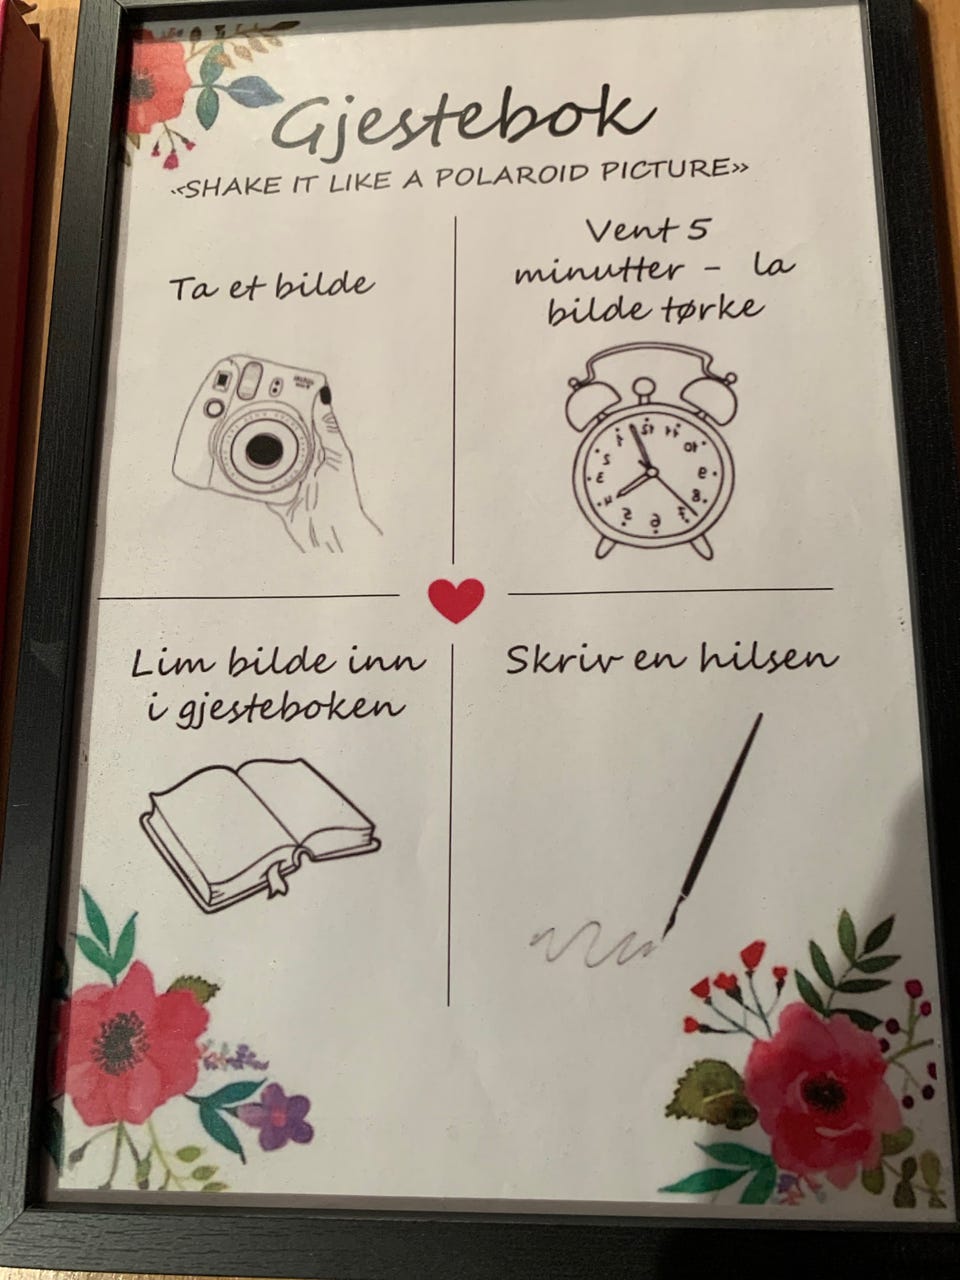 Gjestebok
«SHAKE IT LIKE A POLAROID PICTURE»
Ta et bilde
Vent 5
minutter - la
bilde tørke
Lim bilde inn
i gjesteboken
Skriv en hilsen